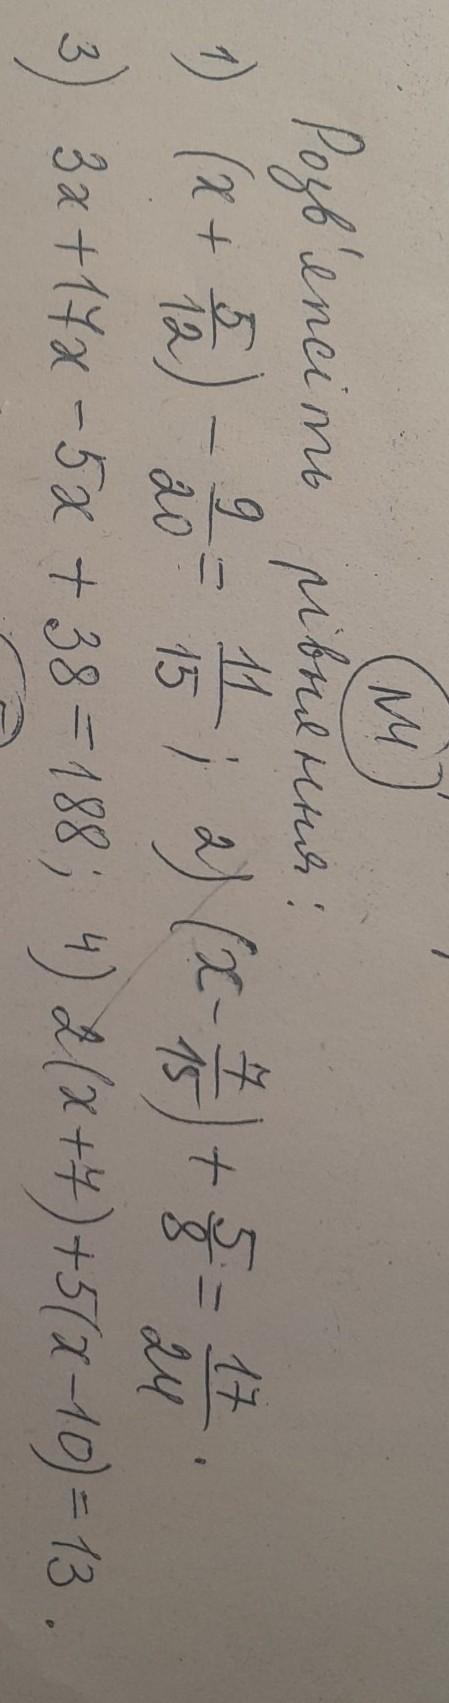 №4
Розв'яжіть рівняння:
1) (x + 5/12) - 9/20 = 11/15 ; 2) (x - 7/15) + 5/8 = 17/24 .
3) 3x + 17x - 5x + 38 = 188; 4) 2(x+7) + 5(x-10) = 13 .